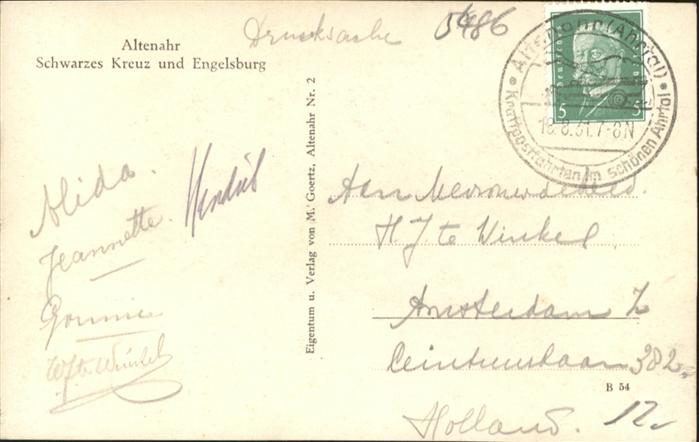 Altenahr
Schwarzes Kreuz und Engelsburg
Drucksache
5486
Altenahr (Ahrtal)
5 5
18.8.31.7-8N
Kraftpostfahrten im schönen Ahrtal
Eigentum u. Verlag von M. Goertz, Altenahr Nr. 2
Alida.
Jeannette.
Hendrik
Gonnie
W.J. te Winkel
Aan
H. J. te Winkel
Amsterdam Z
Ceintuurbaan 382
B 54
Holland. 12